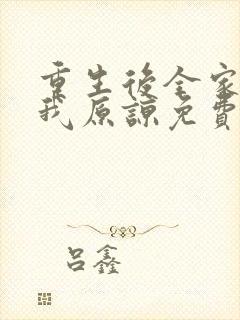 重生後全家
我原諒免費
呂鑫